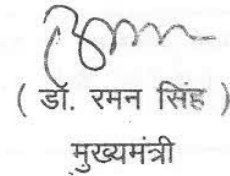 ( डॉ. रमन सिंह )
मुख्यमंत्री